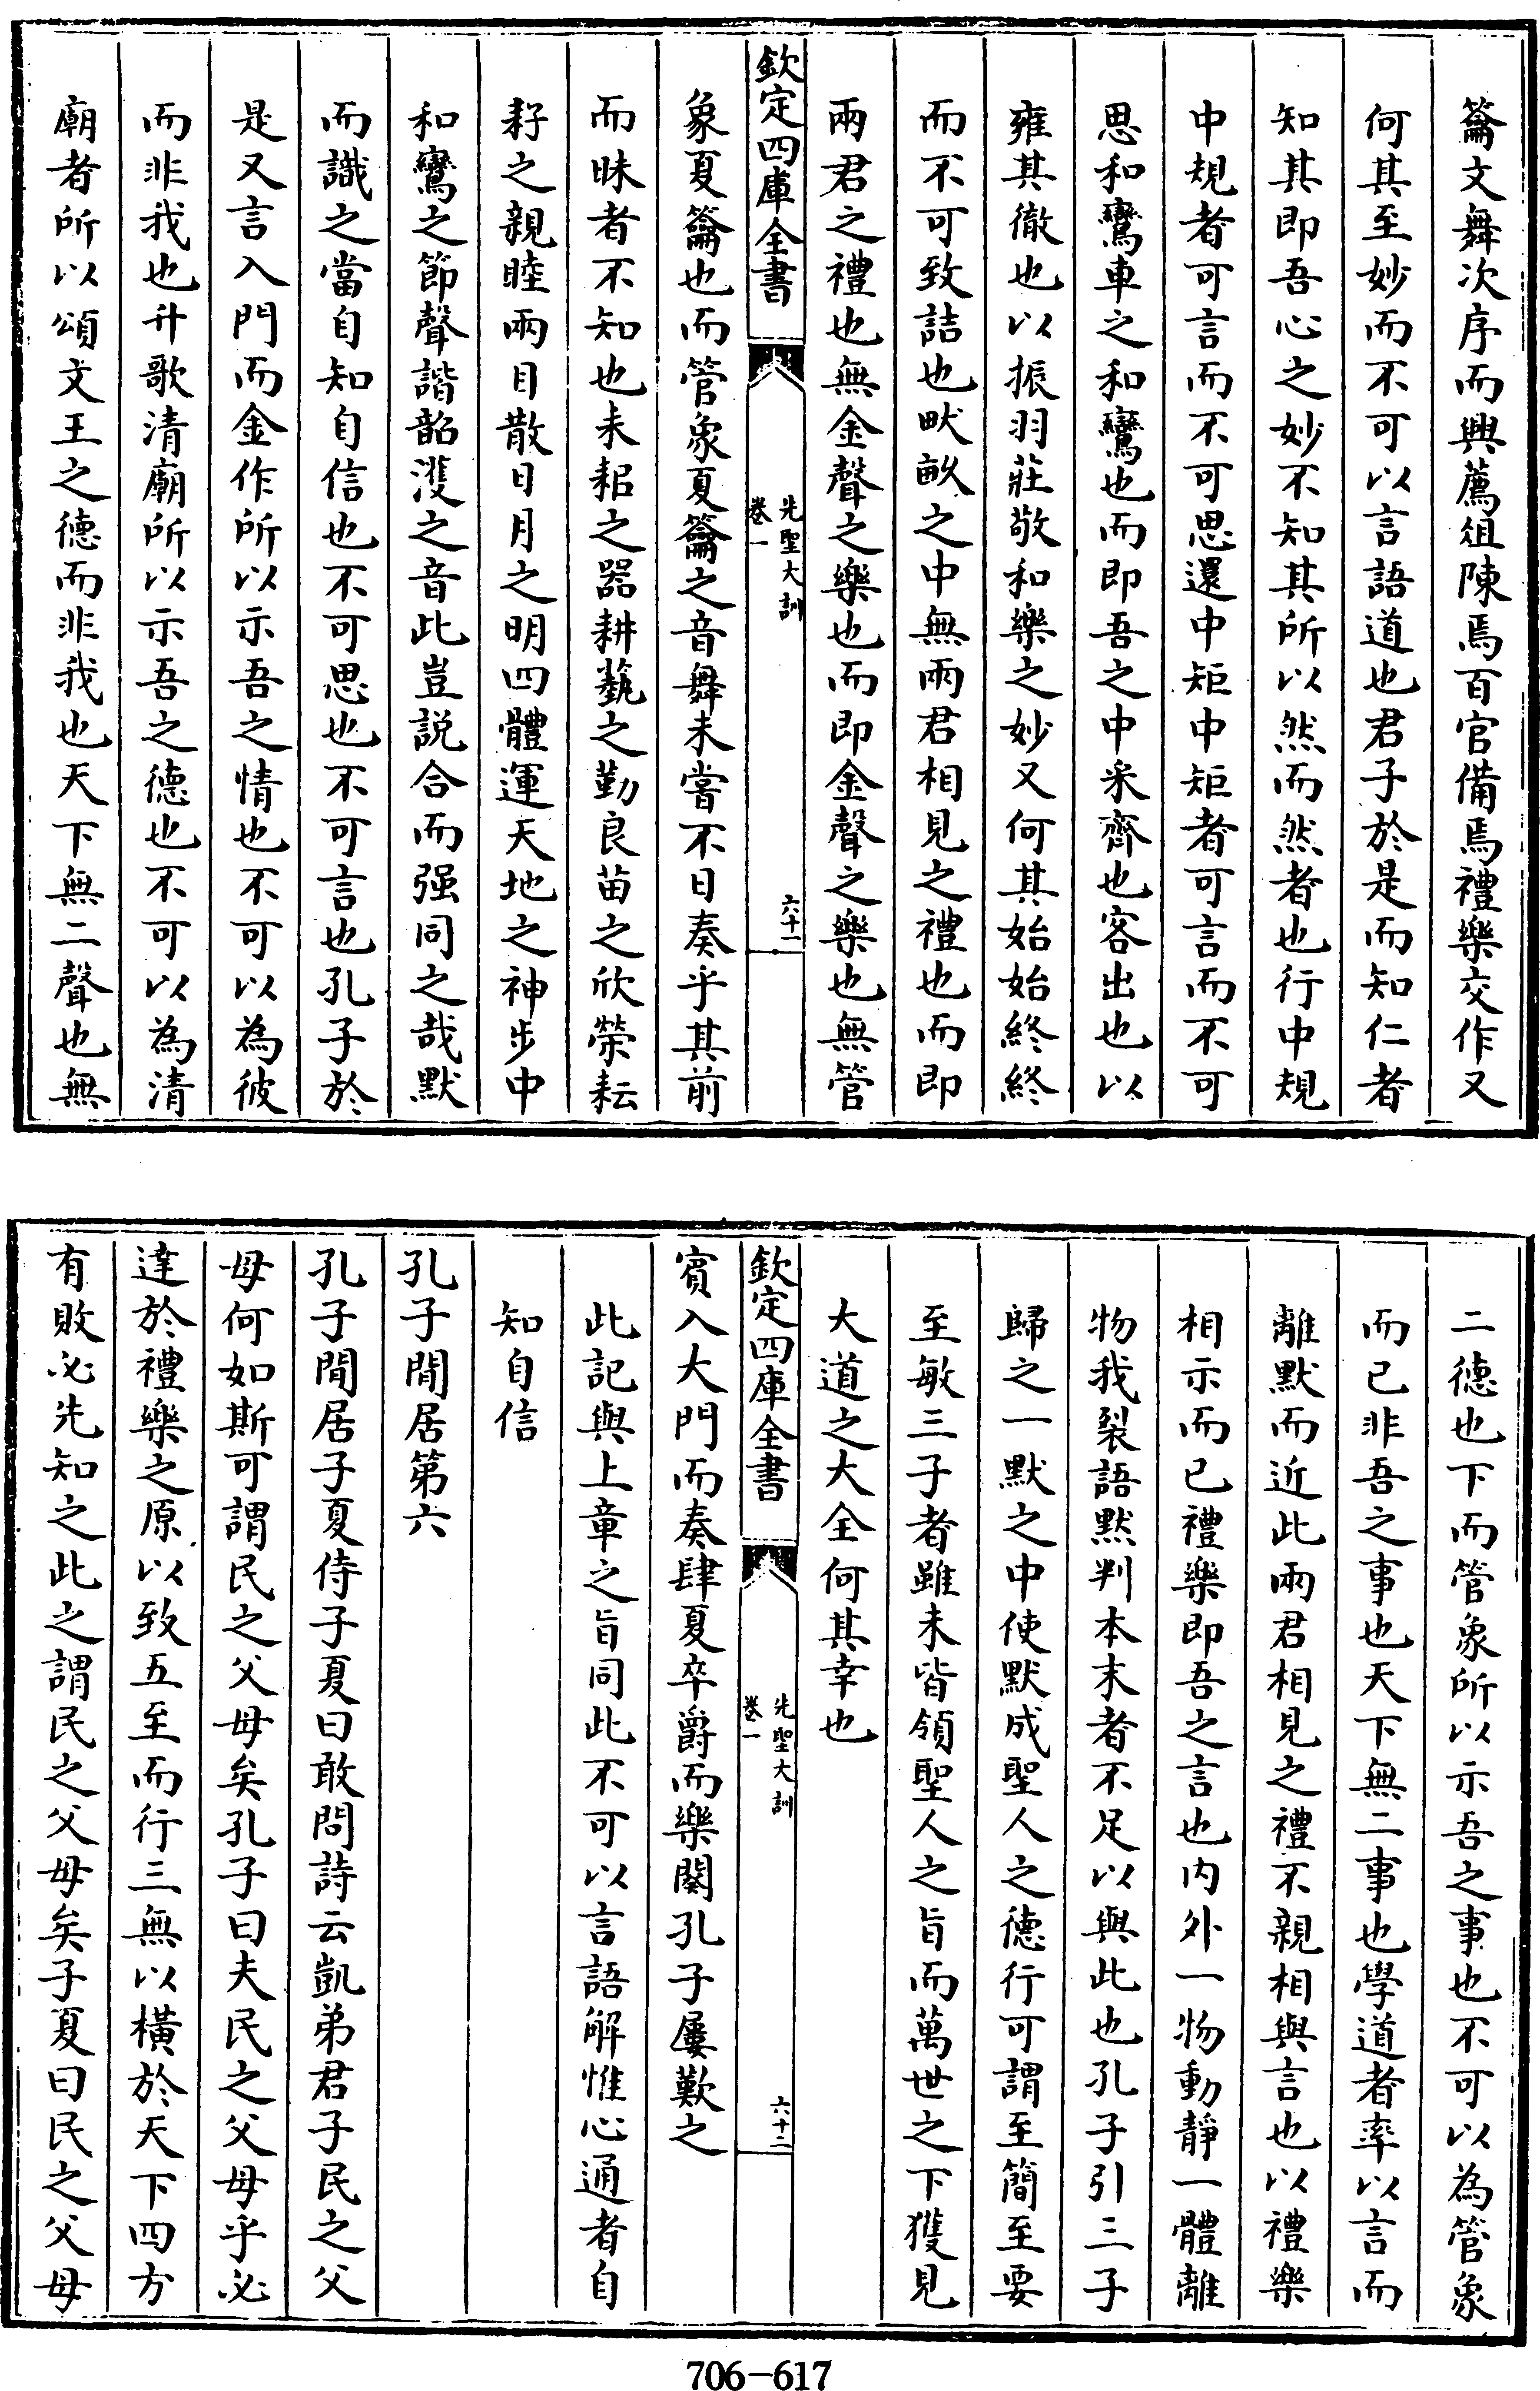 籥文舞次序而興薦俎陳焉百官備焉禮樂交作又
何其至妙而不可以言語道也君子於是而知仁者
知其即吾心之妙不知其所以然而然者也行中規
中規者可言而不可思還中矩中矩者可言而不可
思和鸞車之和鸞也而即吾之中采齊也客出也以
雍其徹也以振羽莊敬和樂之妙又何其始始終終
而不可致詰也畎畝之中無兩君相見之禮也而即
兩君之禮也無金聲之樂也而即金聲之樂也無管
欽定四庫全書
先聖大訓
卷一
六十一
象夏籥也而管象夏籥之音舞未嘗不日奏乎其前
而昧者不知也耒耜之器耕蓺之勤良苗之欣榮耘
耔之親睦兩目散日月之明四體運天地之神步中
和鸞之節聲諧韶濩之音此豈説合而强同之哉默
而識之當自知自信也不可思也不可言也孔子於
是又言入門而金作所以示吾之情也不可以為彼
而非我也升歌清廟所以示吾之德也不可以為清
廟者所以頌文王之德而非我也天下無二聲也無
二德也下而管象所以示吾之事也不可以為管象
而已非吾之事也天下無二事也學道者率以言而
離默而近此兩君相見之禮不親相與言也以禮樂
相示而已禮樂即吾之言也内外一物動靜一體離
物我裂語默判本末者不足以與此也孔子引三子
歸之一默之中使默成聖人之德行可謂至簡至要
至敏三子者雖未皆領聖人之旨而萬世之下獲見
大道之大全何其幸也
欽定四庫全書
先聖大訓
卷一
六十二
賓入大門而奏肆夏卒爵而樂闋孔子屢歎之
此記與上章之旨同此不可以言語解惟心通者自
知自信
孔子閒居第六
孔子閒居子夏侍子夏曰敢問詩云凱弟君子民之父
母何如斯可謂民之父母矣孔子曰夫民之父母乎必
達於禮樂之原以致五至而行三無以橫於天下四方
有敗必先知之此之謂民之父母矣子夏曰民之父母
706-617